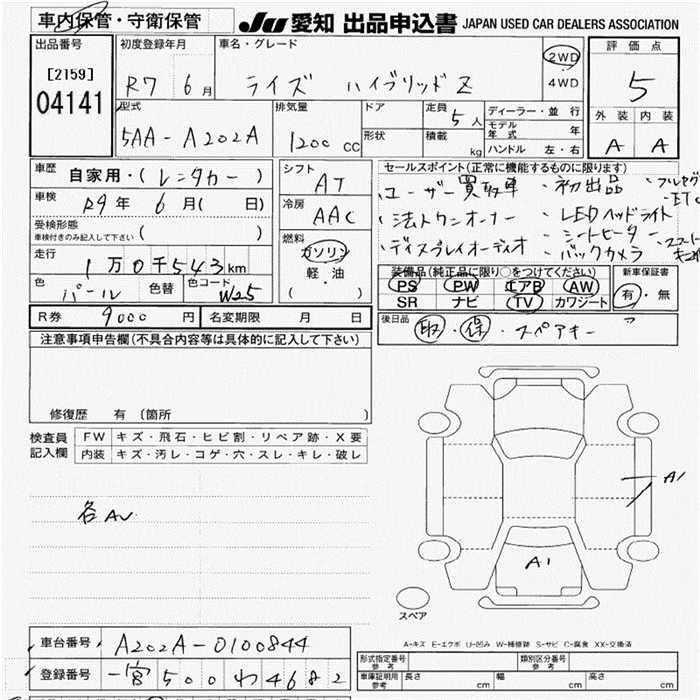 車内保管・守衛保管 JU 愛知 出品申込書 JAPAN USED CAR DEALERS ASSOCIATION
出品番号 初度登録年月 車名・グレード 2WD 評価点
[2159] R7 6月 ライズ ハイブリッドZ 4WD 5
04141 型式 排気量 ドア 定員 5人 ディーラー・並行 外装 内装
5AA-A202A 1200 CC 形状 積載 kg モデル年式 年 A A
ハンドル 左・右
車歴 自家用・(レンタカー) シフト AT セールスポイント(正常に機能するものに限ります)
車検 R9年 6月( 日) 冷房 AAC ・ユーザー買取車 ・初出品 ・フルセグ ETC
受検形態 ・法人ワンオーナー ・LEDヘッドライト
車検付きのみ記入して下さい ( ) 燃料 ・シートヒーター
走行 1万0千543km ガソリン ・ディスプレイオーディオ ・バックカメラ
軽・油 装備品(純正品に限り○をつけてください) 新車保証書
色 パール 色替 色コード W25 ( ) PS PW エアB AW 有・無
SR ナビ TV カワシート
R券 9000円 名変期限 月 日 後日品 取・保・スペアキー
注意事項申告欄(不具合内容等は具体的に記入して下さい)
修復歴 有 (箇所 )
検査員 FW キズ・飛石・ヒビ割・リペア跡・X要
記入欄 内装 キズ・汚レ・コゲ・穴・スレ・キレ・破レ
A1
各AU
A1
スペア
A-キズ E-エクボ U-凹み W-補修跡 S-サビ C-腐食 XX-交換済
車台番号 A202A-0100844 形式指定番号 参考 類別区分番号 参考
登録番号 一宮500わ4682 車庫証明用 参考 長さ cm 幅 cm 高さ cm